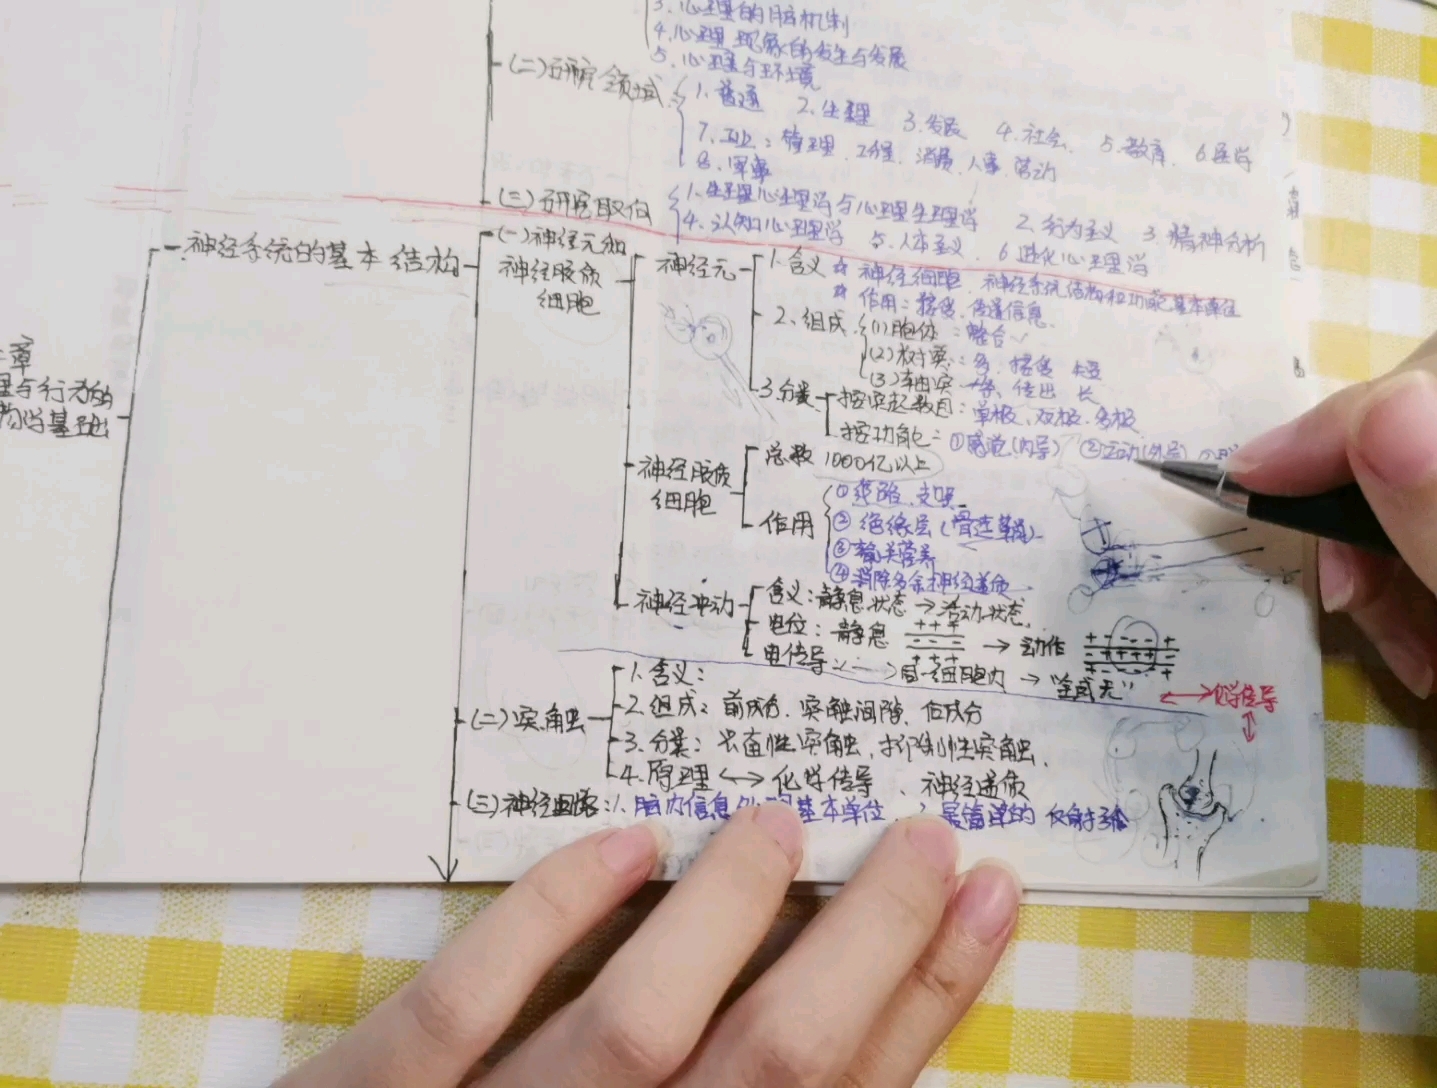 3.心理的脑机制
4.心理现象的发生与发展
5.心理与环境
(二)研究领域
1.普通 2.生理 3.发展 4.社会 5.教育 6.医学
7.工业:管理.工程.消费.人事.劳动
8.军事
(三)研究取向
1.生理心理学与心理生理学 2.行为主义 3.精神分析
4.认知心理学 5.人本主义 6.进化心理学
神经系统的基本结构
(一)神经元和
神经胶质
细胞
神经元
1.含义
神经细胞.神经系统结构和功能基本单位
作用:接受.传递信息.
2.组成
(1)胞体:整合
(2)树突:多.接受 短
(3)轴突 一条.传出 长
3.分类
按突起数目:单极、双极.多极
按功能:①感觉(内导) ②运动(外导)
章
与行为的
学基础
神经胶质
细胞
总数 1000亿以上
作用
① 支架
②绝缘层(髓鞘)
③输送营养
④消除多余神经递质
神经冲动
含义:静息状态→活动状态.
电位:静息 +++ → 动作
电传导 → 同一细胞内 → "全或无"
(二)突触
1.含义:
2.组成:前成分.突触间隙、后成分
3.分类:兴奋性突触.抑制性突触.
4.原理 ↔ 化学传导、神经递质
化学传导
(三)神经回路:1.脑内信息处理基本单位 2.最简单的 反射弧